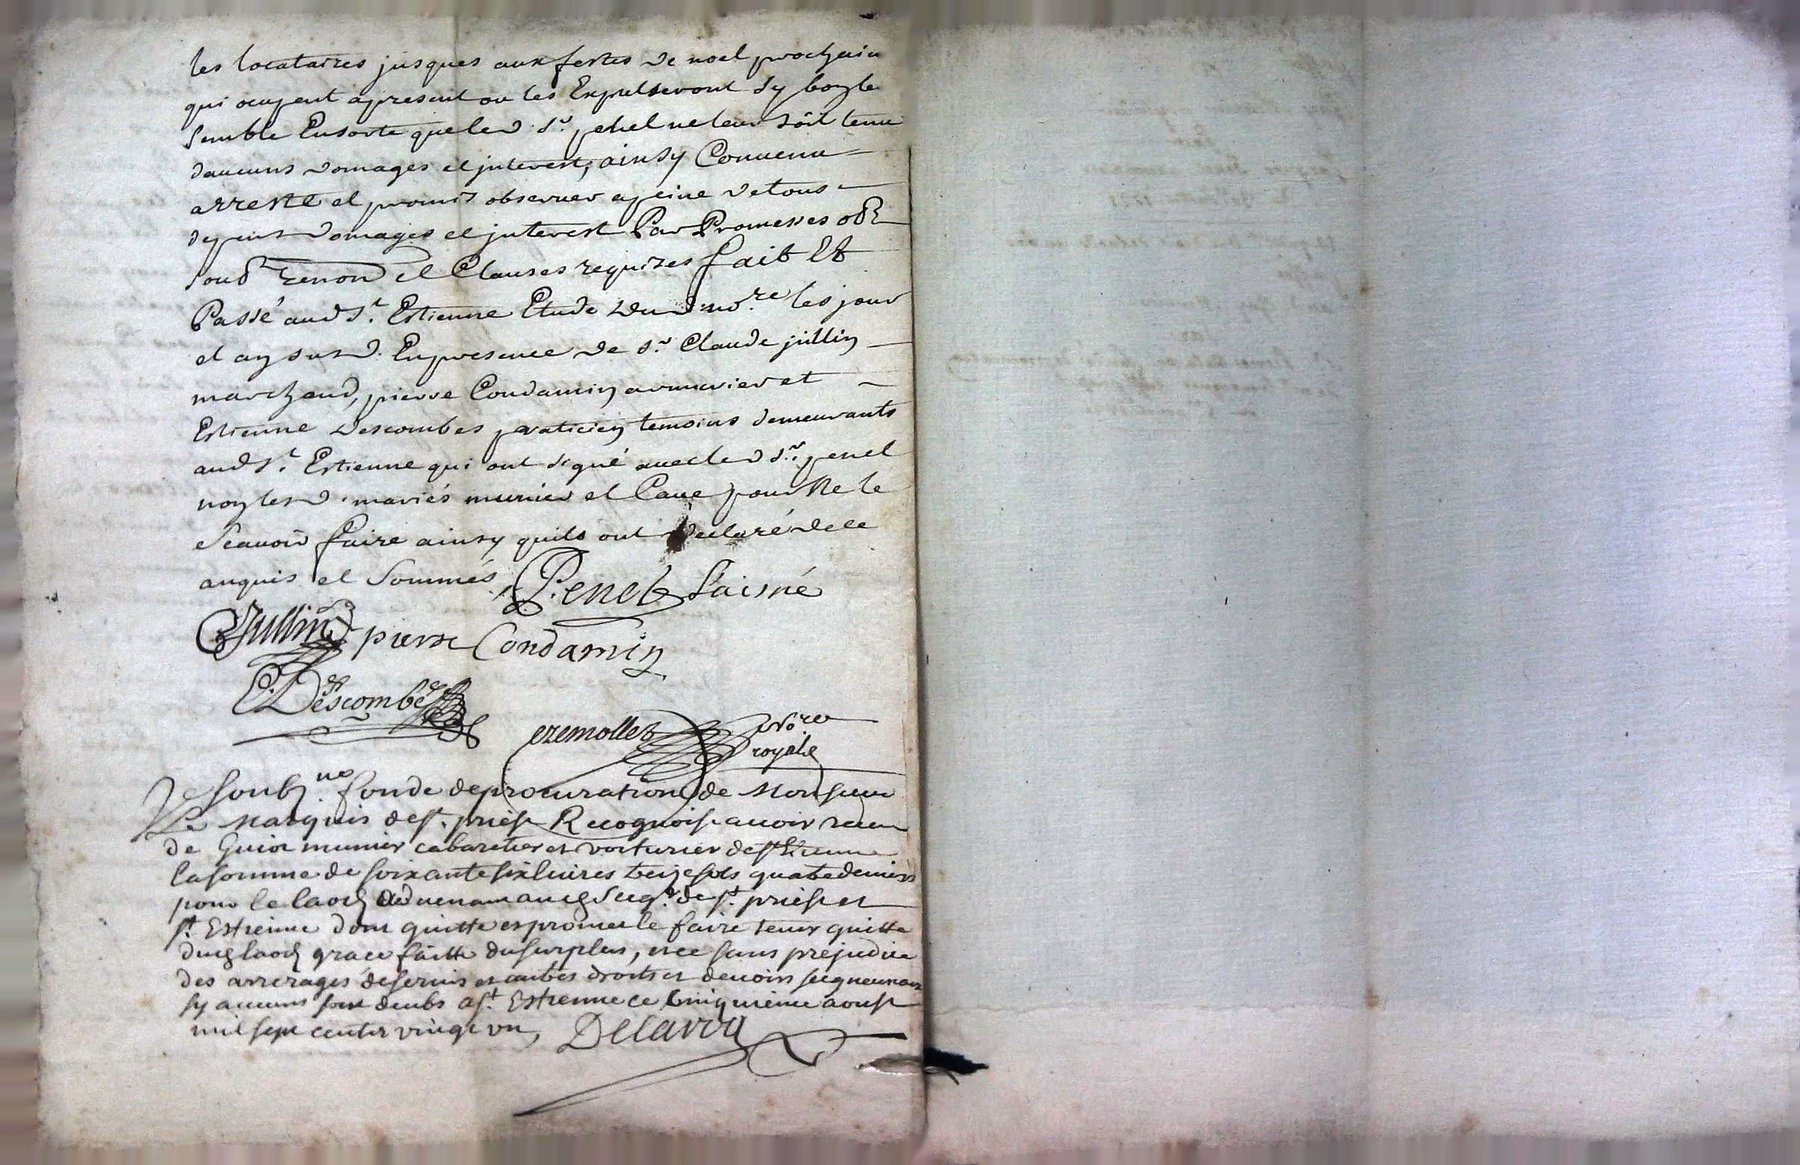 les locataires jusques aux festes de noel prochain
qui ocupent apresent ou les Expulseront sy bon le
semble Ensorte que led sr. penel ne leur soit tenu
daucuns domages et interest, ainsy Convenu
arresté et promis observer apeine de tous
depens domages et interest Par Promesses obl
soub renon et Clauses requises fait Et
Passé aud St. Estienne Etude dud no.re les jour
et an susd. En presence de sr. Claude jullin
marchand, pierre Condamin armurier et
Estienne descombes praticien temoins demeurants
aud St. Estienne qui ont signé avec led sr. penel
non lesd. mariés munier et Cave pour ne le
scavoir faire ainsy quils ont declaré de ce
anquis et Sommés Penel L'aisné
CJullin pierre Condamin
E. Descombe
ezemollet No.re
royal
Je soubz.ne fondé de procuration de Monsieur
Le Marquis de st. priest Recognois avoir receu
de Guiot munier cabaretier et voiturier de st Etienne
la somme de soixante six livres treize sols quatre deniers
pour le laod
st. Estienne dont quitte et promet le faire tenir quitte
dud laod grace faitte du surplus, et ce sans prejudice
des arrerages de servis et autres droits et devoirs seigneuriaux
sy aucuns sont deubs a st. Estienne ce cinquieme aoust
mil sept centz vingt un, Delavva